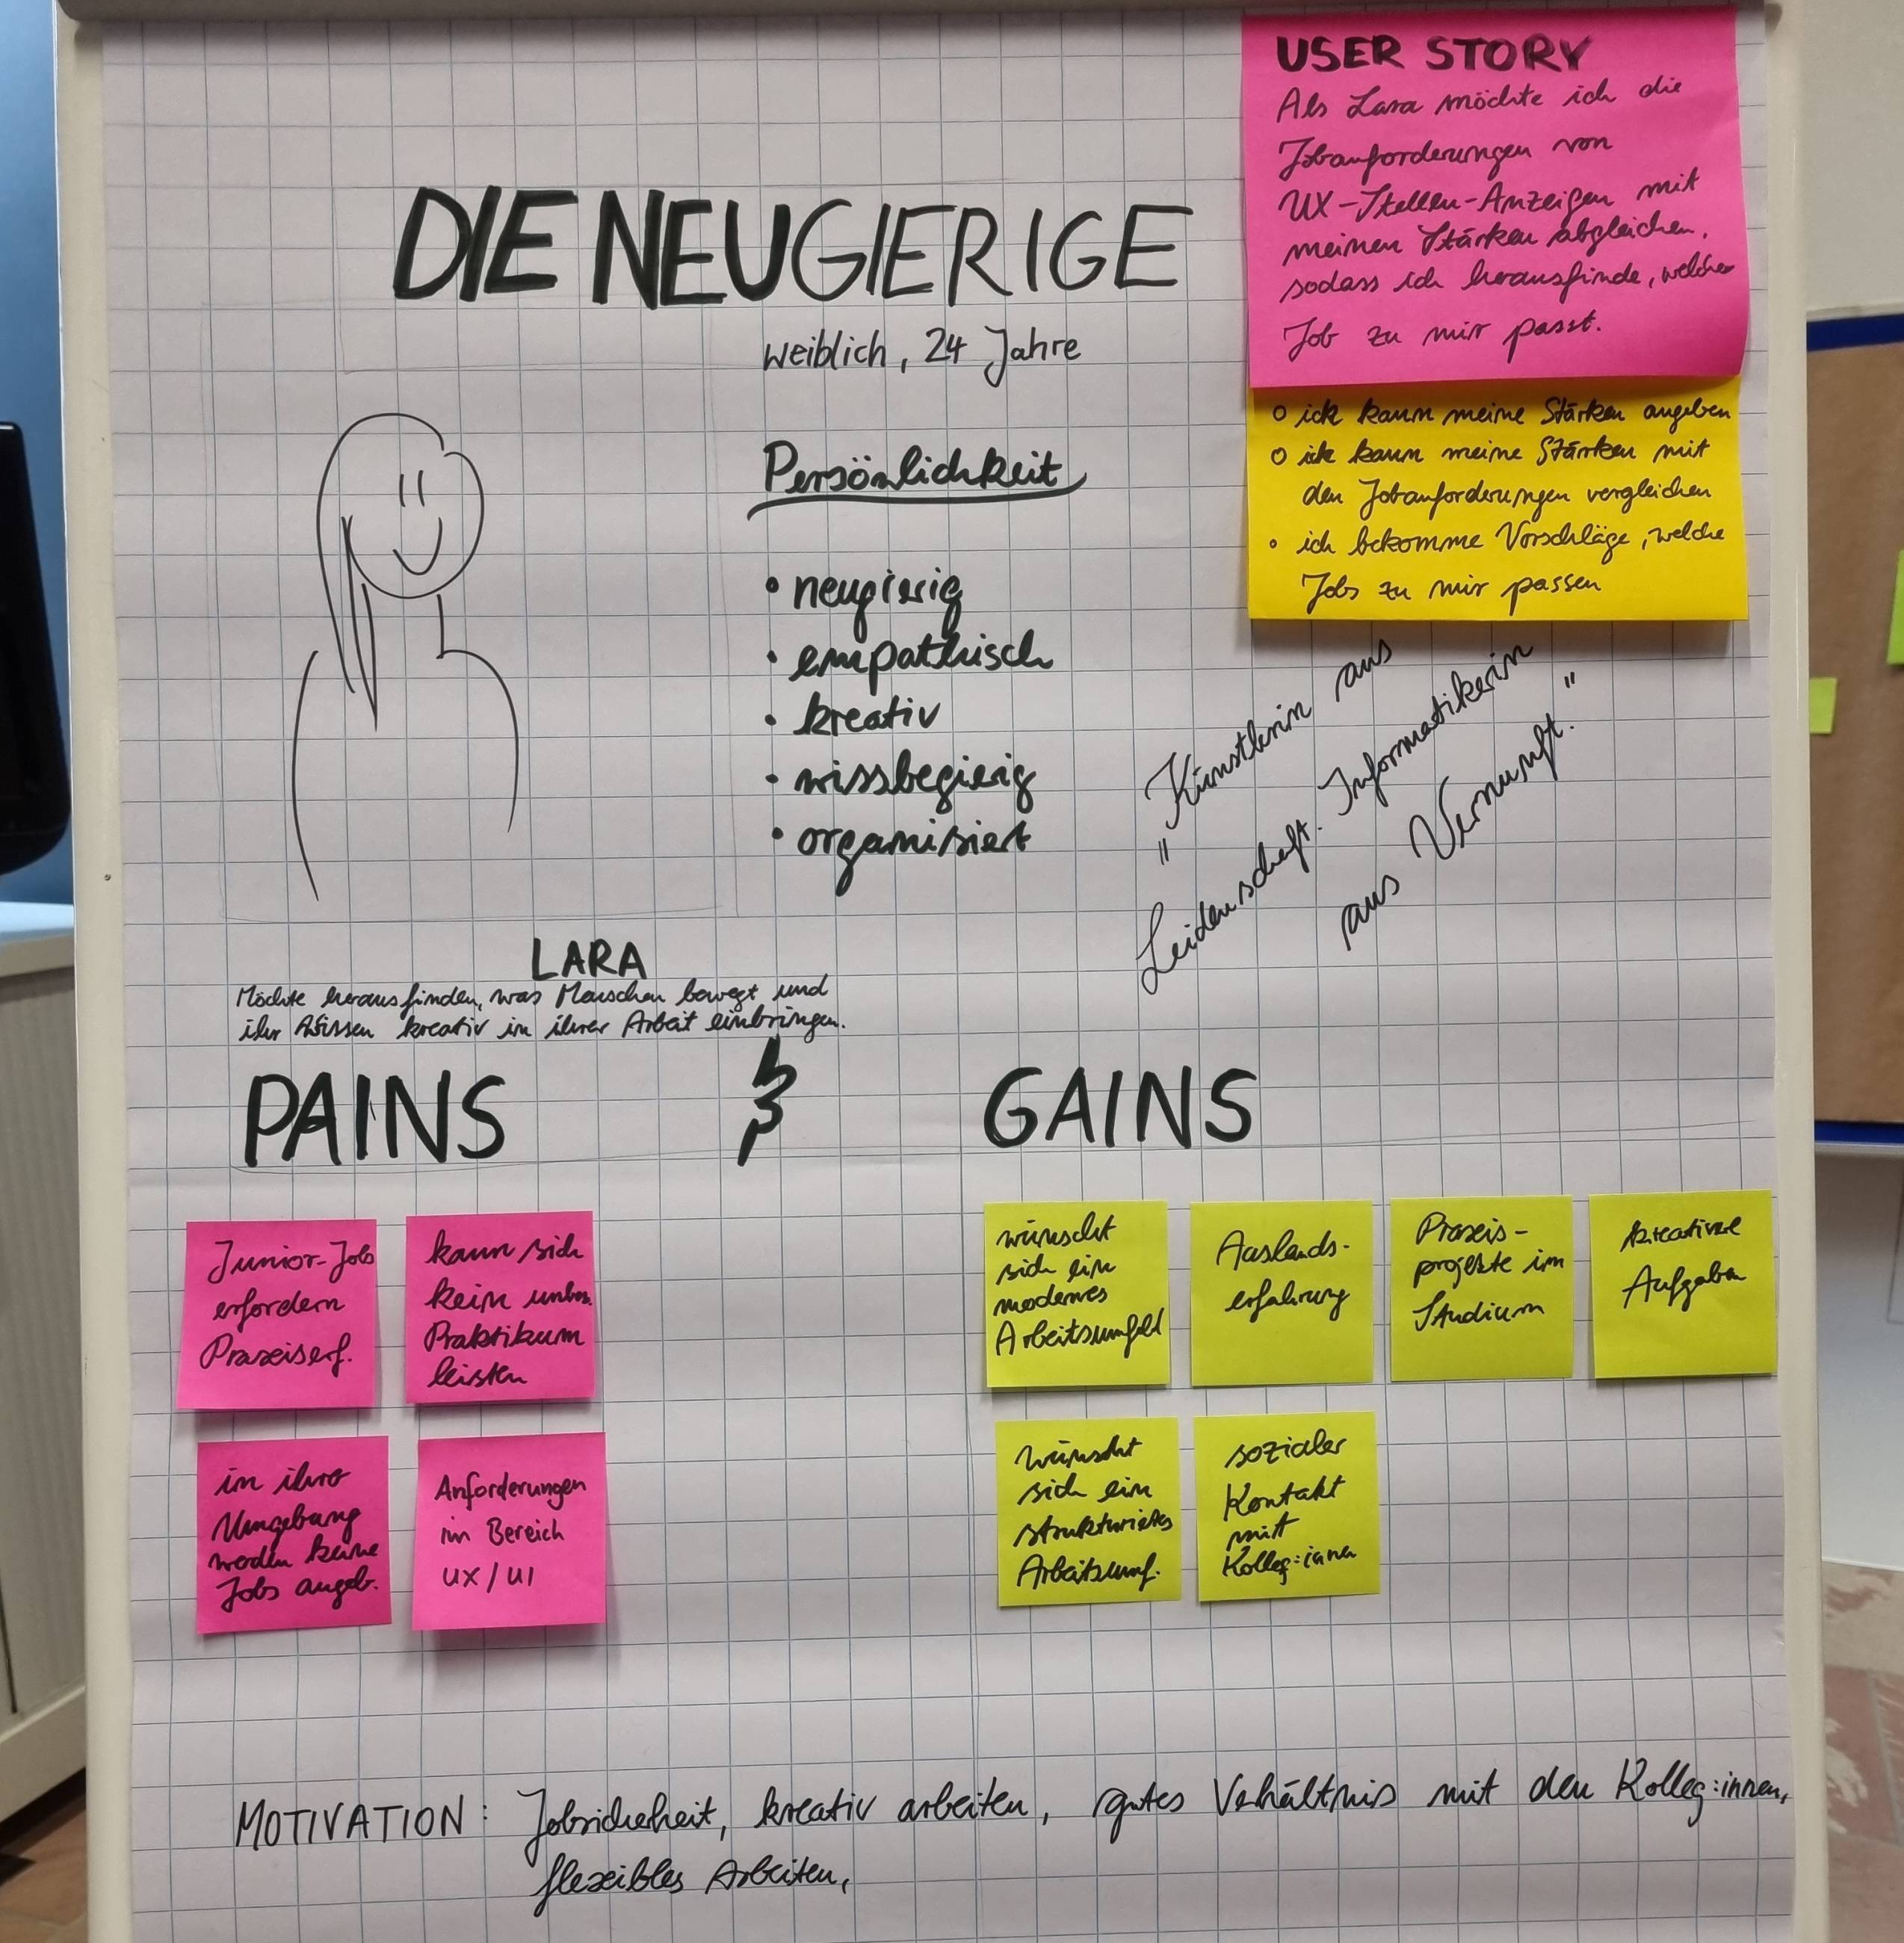 DIE NEUGIERIGE
weiblich, 24 Jahre
USER STORY
Als Lara möchte ich die
Jobanforderungen von
UX-Stellen-Anzeigen mit
meinen Stärken abgleichen,
sodass ich herausfinde, welcher
Job zu mir passt.
o ich kann meine Stärken angeben
o ich kann meine Stärken mit
den Jobanforderungen vergleichen
o ich bekomme Vorschläge, welche
Jobs zu mir passen
Persönlichkeit
• neugierig
• empathisch
• kreativ
• wissbegierig
• organisiert
"Künstlerin aus
Leidenschaft. Informatikerin
aus Vernunft."
LARA
Möchte herausfinden, was Menschen bewegt und
ihr Wissen kreativ in ihrer Arbeit einbringen.
PAINS
&
GAINS
Junior-Jobs
erfordern
Praxiserf.
kann sich
kein unbez.
Praktikum
leisten
in ihrer
Umgebung
werden keine
Jobs angeb.
Anforderungen
im Bereich
UX/UI
wünscht
sich ein
modernes
Arbeitsumfeld
Auslands-
erfahrung
Praxis-
projekte im
Studium
kreative
Aufgaben
wünscht
sich ein
strukturiertes
Arbeitsumf.
sozialer
Kontakt
mit
Kolleg:innen
MOTIVATION: Jobsicherheit, kreativ arbeiten, gutes Verhältnis mit den Kolleg:innen,
flexibles Arbeiten,